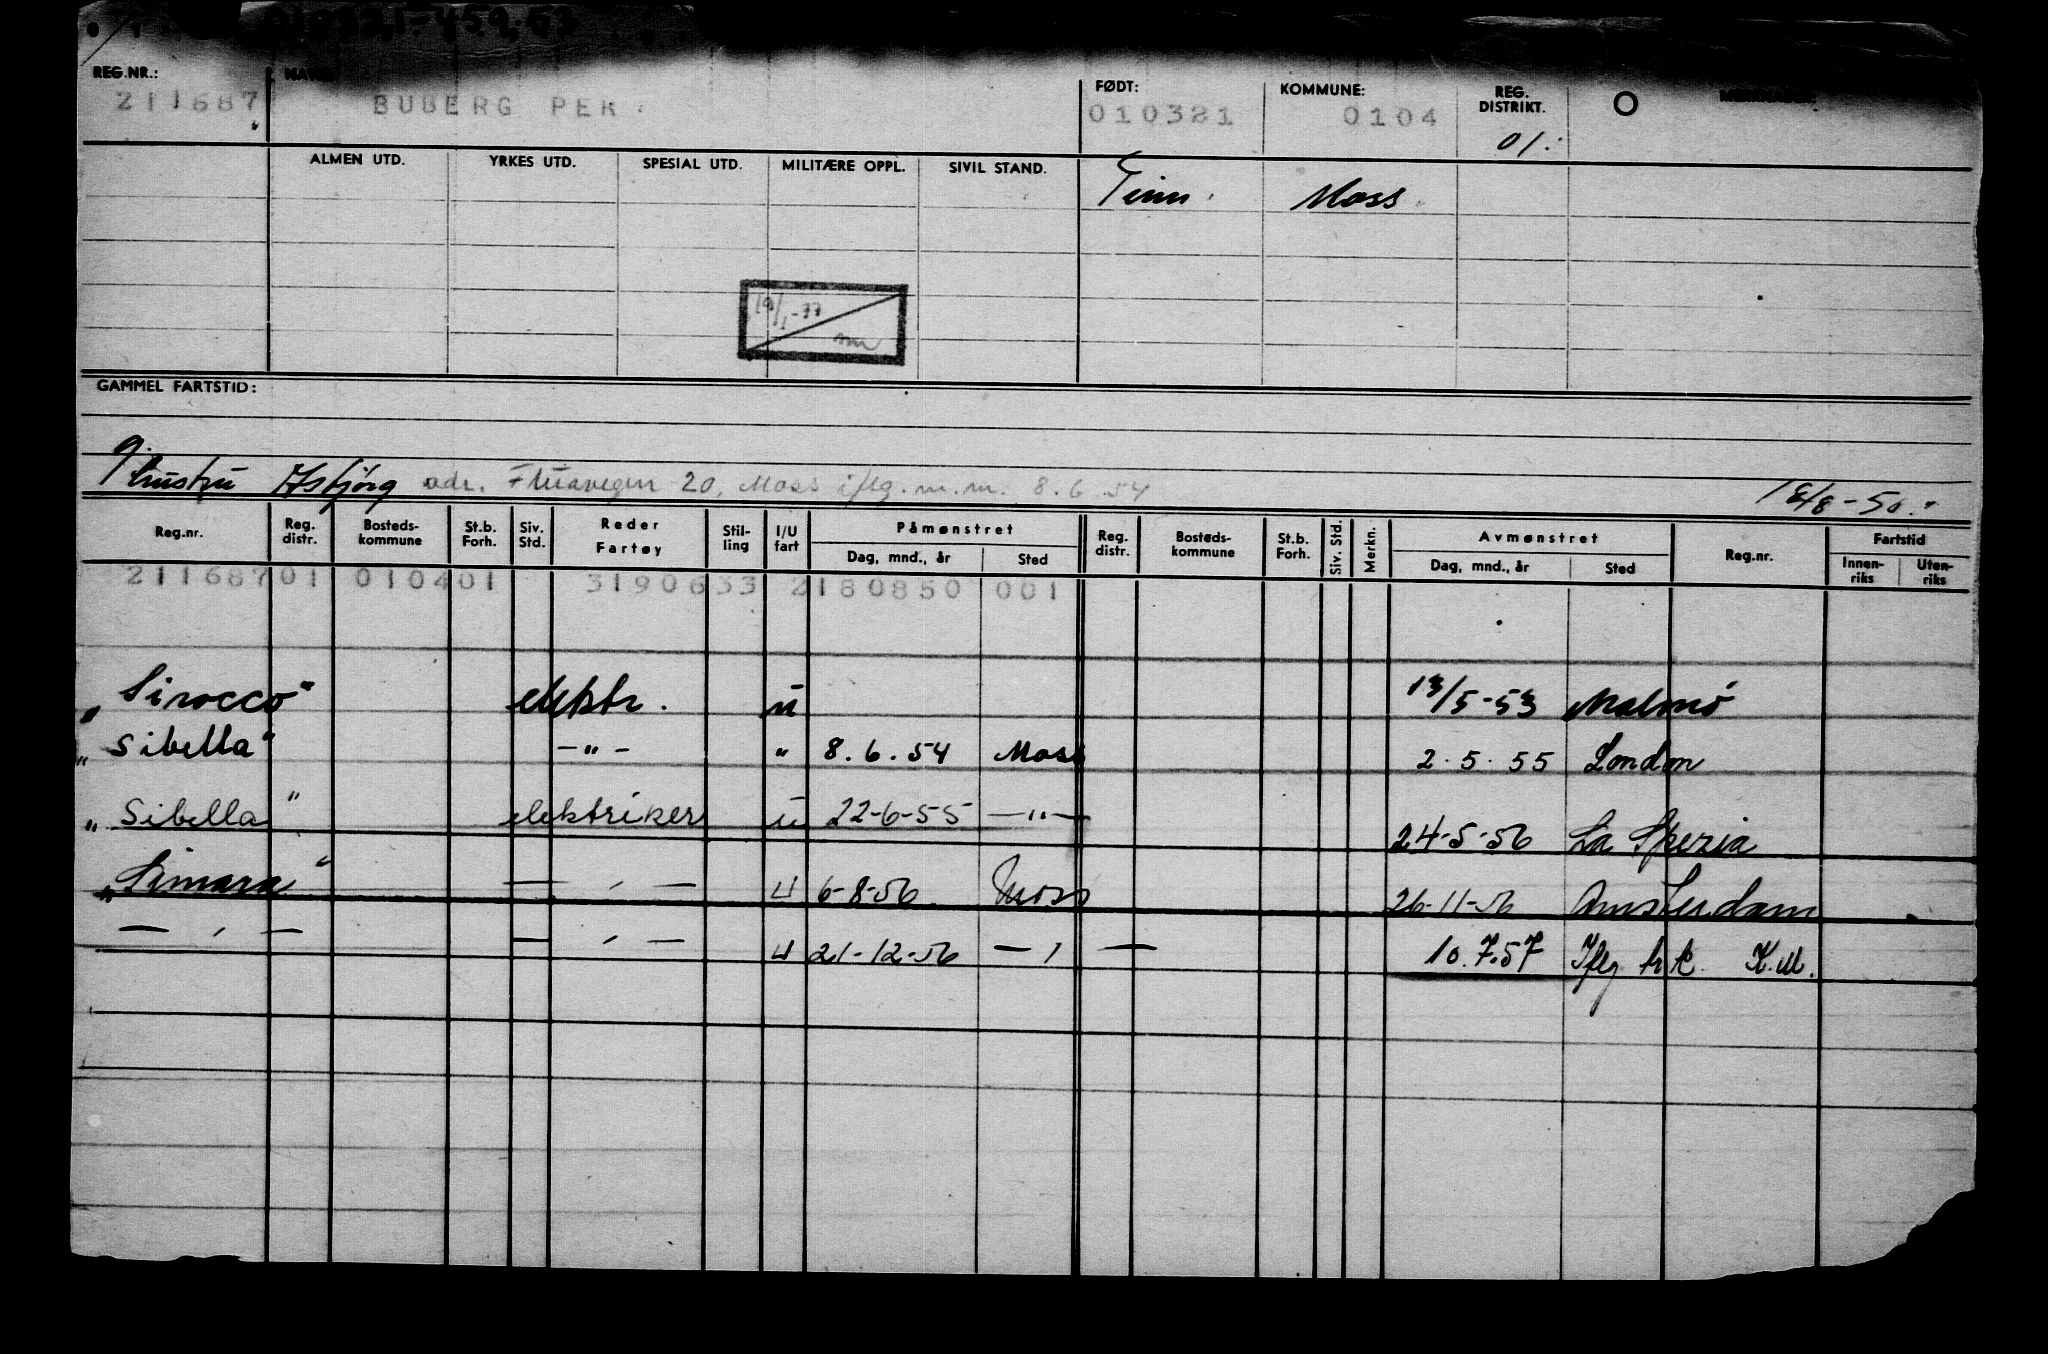 010321-459.53
REG.NR.: NAVN FØDT: KOMMUNE: REG. DISTRIKT. MERKNADER:
211687 BUBERG PER. 010321 0104 01.
ALMEN UTD. YRKES UTD. SPESIAL UTD. MILITÆRE OPPL. SIVIL STAND. Tinn. Moss.
19/1-77
GAMMEL FARTSTID:
g.
hustru Asbjørg adr. 20, Moss iflg. m.m. 8.6.54 18/8-50.
Reg.nr. Reg. distr. Bosteds- kommune St.b. Forh. Siv. Std. Reder Fartøy Stil- ling I/U fart Påmønstret Dag, mnd., år Sted Reg. distr. Bosteds- kommune St.b. Forh. Siv. Std. Merkn. Avmønstret Dag, mnd., år Sted Reg.nr. Fartstid Innen- riks Uten- riks
211687 01 0104 01 3190633 2180850 001
„Sirocco" elektr. u 13/5-53 Malmö
„Sibella" -"- " 8.6.54 Moss 2.5.55 London
„Sibella" elektriker u 22-6-55 -"- 24-5-56 La Spezia
„Simara" — ′ — u 6-8-56 Moss 26-11-56 Amsterdam
— ′ — — ′ — u 21-12-56 — ′ — 10.7.57 Iflg K.M.